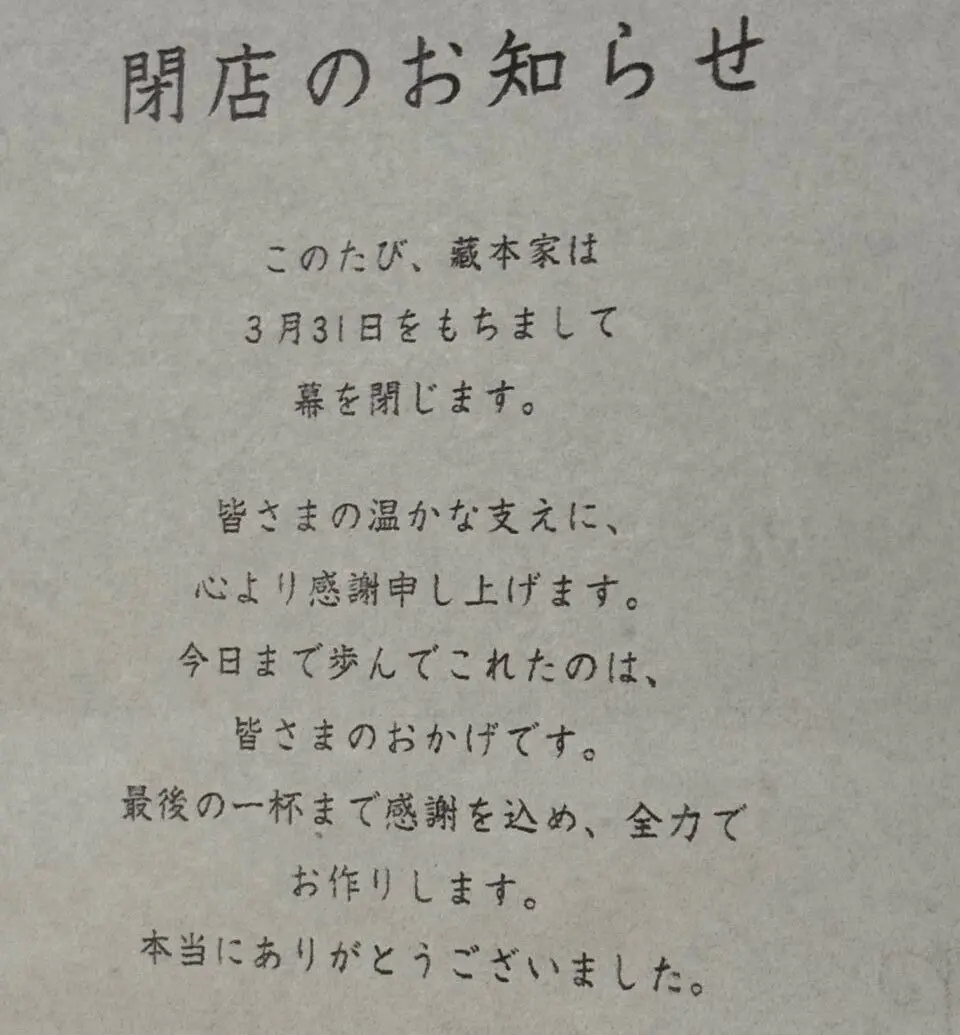 閉店のお知らせ
このたび、蔵本家は
3月31日をもちまして
幕を閉じます。
皆さまの温かな支えに、
心より感謝申し上げます。
今日まで歩んでこれたのは、
皆さまのおかげです。
最後の一杯まで感謝を込め、全力で
お作りします。
本当にありがとうございました。